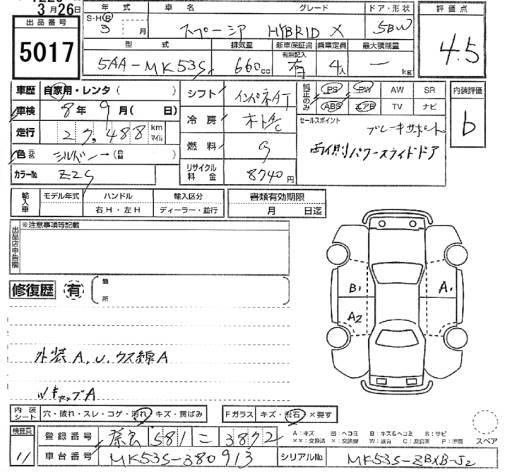 3月26日
出品番号
5017
年式 車名 グレード ドア・形状 評価点
S・H・R 3 月 スペーシア HYBRID X 5BW
4.5
型式 排気量 新車保証書 有無記入 乗車定員 最大積載量
5AA-MK53S 660cc 有 4人 — kg
車歴 自家用・レンタ( )
車検 8年9月(日)
走行 27,488 km マイル
色 シルバー
カラーNo. Z2S
シフト インパネAT
冷房 オートAC
燃料 G
リサイクル料金 8740円
PS PW AW SR
ABS エアB TV ナビ
内装評価
b
セールスポイント
ブレーキサポート
両側パワースライドドア
輸入車 モデル年式 ハンドル 輸入区分 書類有効期限
年 右H・左H ディーラー・並行 月 日迄
※注意事項等記載
修復歴 有 箇所
B1 A1
A2
外装A,U,ウス線A
Wキップ A
内装シート 穴・破れ・スレ・コゲ・汚れ・キズ・肪ばみ Fガラス キズ・飛石・X要す
検査員 11
登録番号 581 3872
A:キズ U:ヘコミ B:キズ&ヘコミ S:サビ
スペア
車台番号 MK53S-380913 シリアルNo. MK53S-ZBXB-J2